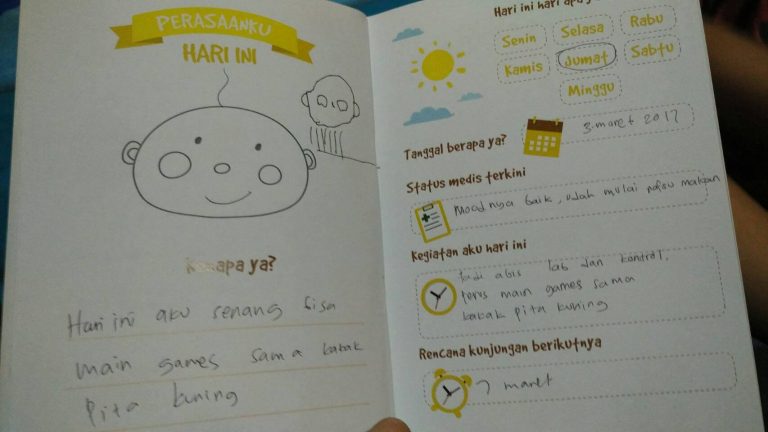 PERASAANKU
HARI INI
Kenapa ya?
Hari ini aku senang bisa
main games sama kakak
Pita kuning
Hari ini hari apa y
Senin
Selasa
Rabu
Kamis
Jumat
Sabtu
Minggu
Tanggal berapa ya?
3 maret 2017
Status medis terkini
Moodnya baik, udah mulai nafsu makan
Kegiatan aku hari ini
tadi abis lab dan kontrol.
terus main games sama
kakak pita kuning
Rencana kunjungan berikutnya
7 maret